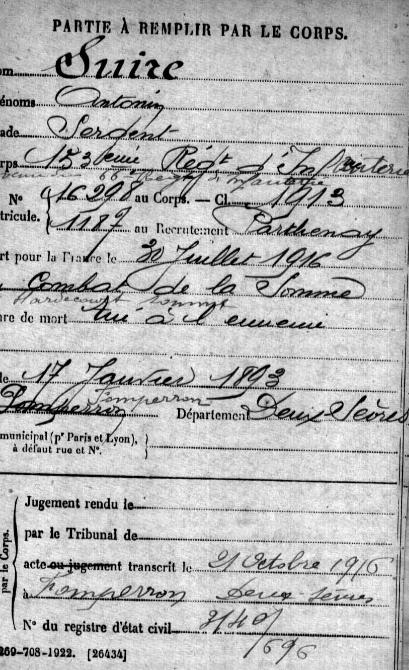 PARTIE À REMPLIR PAR LE CORPS.
om Suire
énoms Antonin
ade Sergent
orps 153eme Régt d'Infanterie
N° 16298 au Corps. — Cl. 1913
tricule. 1187 au Recrutement Parthenay
rt pour la France le 30 Juillet 1916
Combat de la Somme
Hardecourt Somme
nre de mort tué à l'ennemi
le 17 Janvier 1893
Pomperron Fomperron Département Deux Sèvres
municipal (pr Paris et Lyon),
à défaut rue et N°.
par le Corps.
Jugement rendu le
par le Tribunal de
acte ou jugement transcrit le 21 Octobre 1916
à Fomperron Deux-Sèvres
N° du registre d'état civil
/696
269-708-1922. [26434]